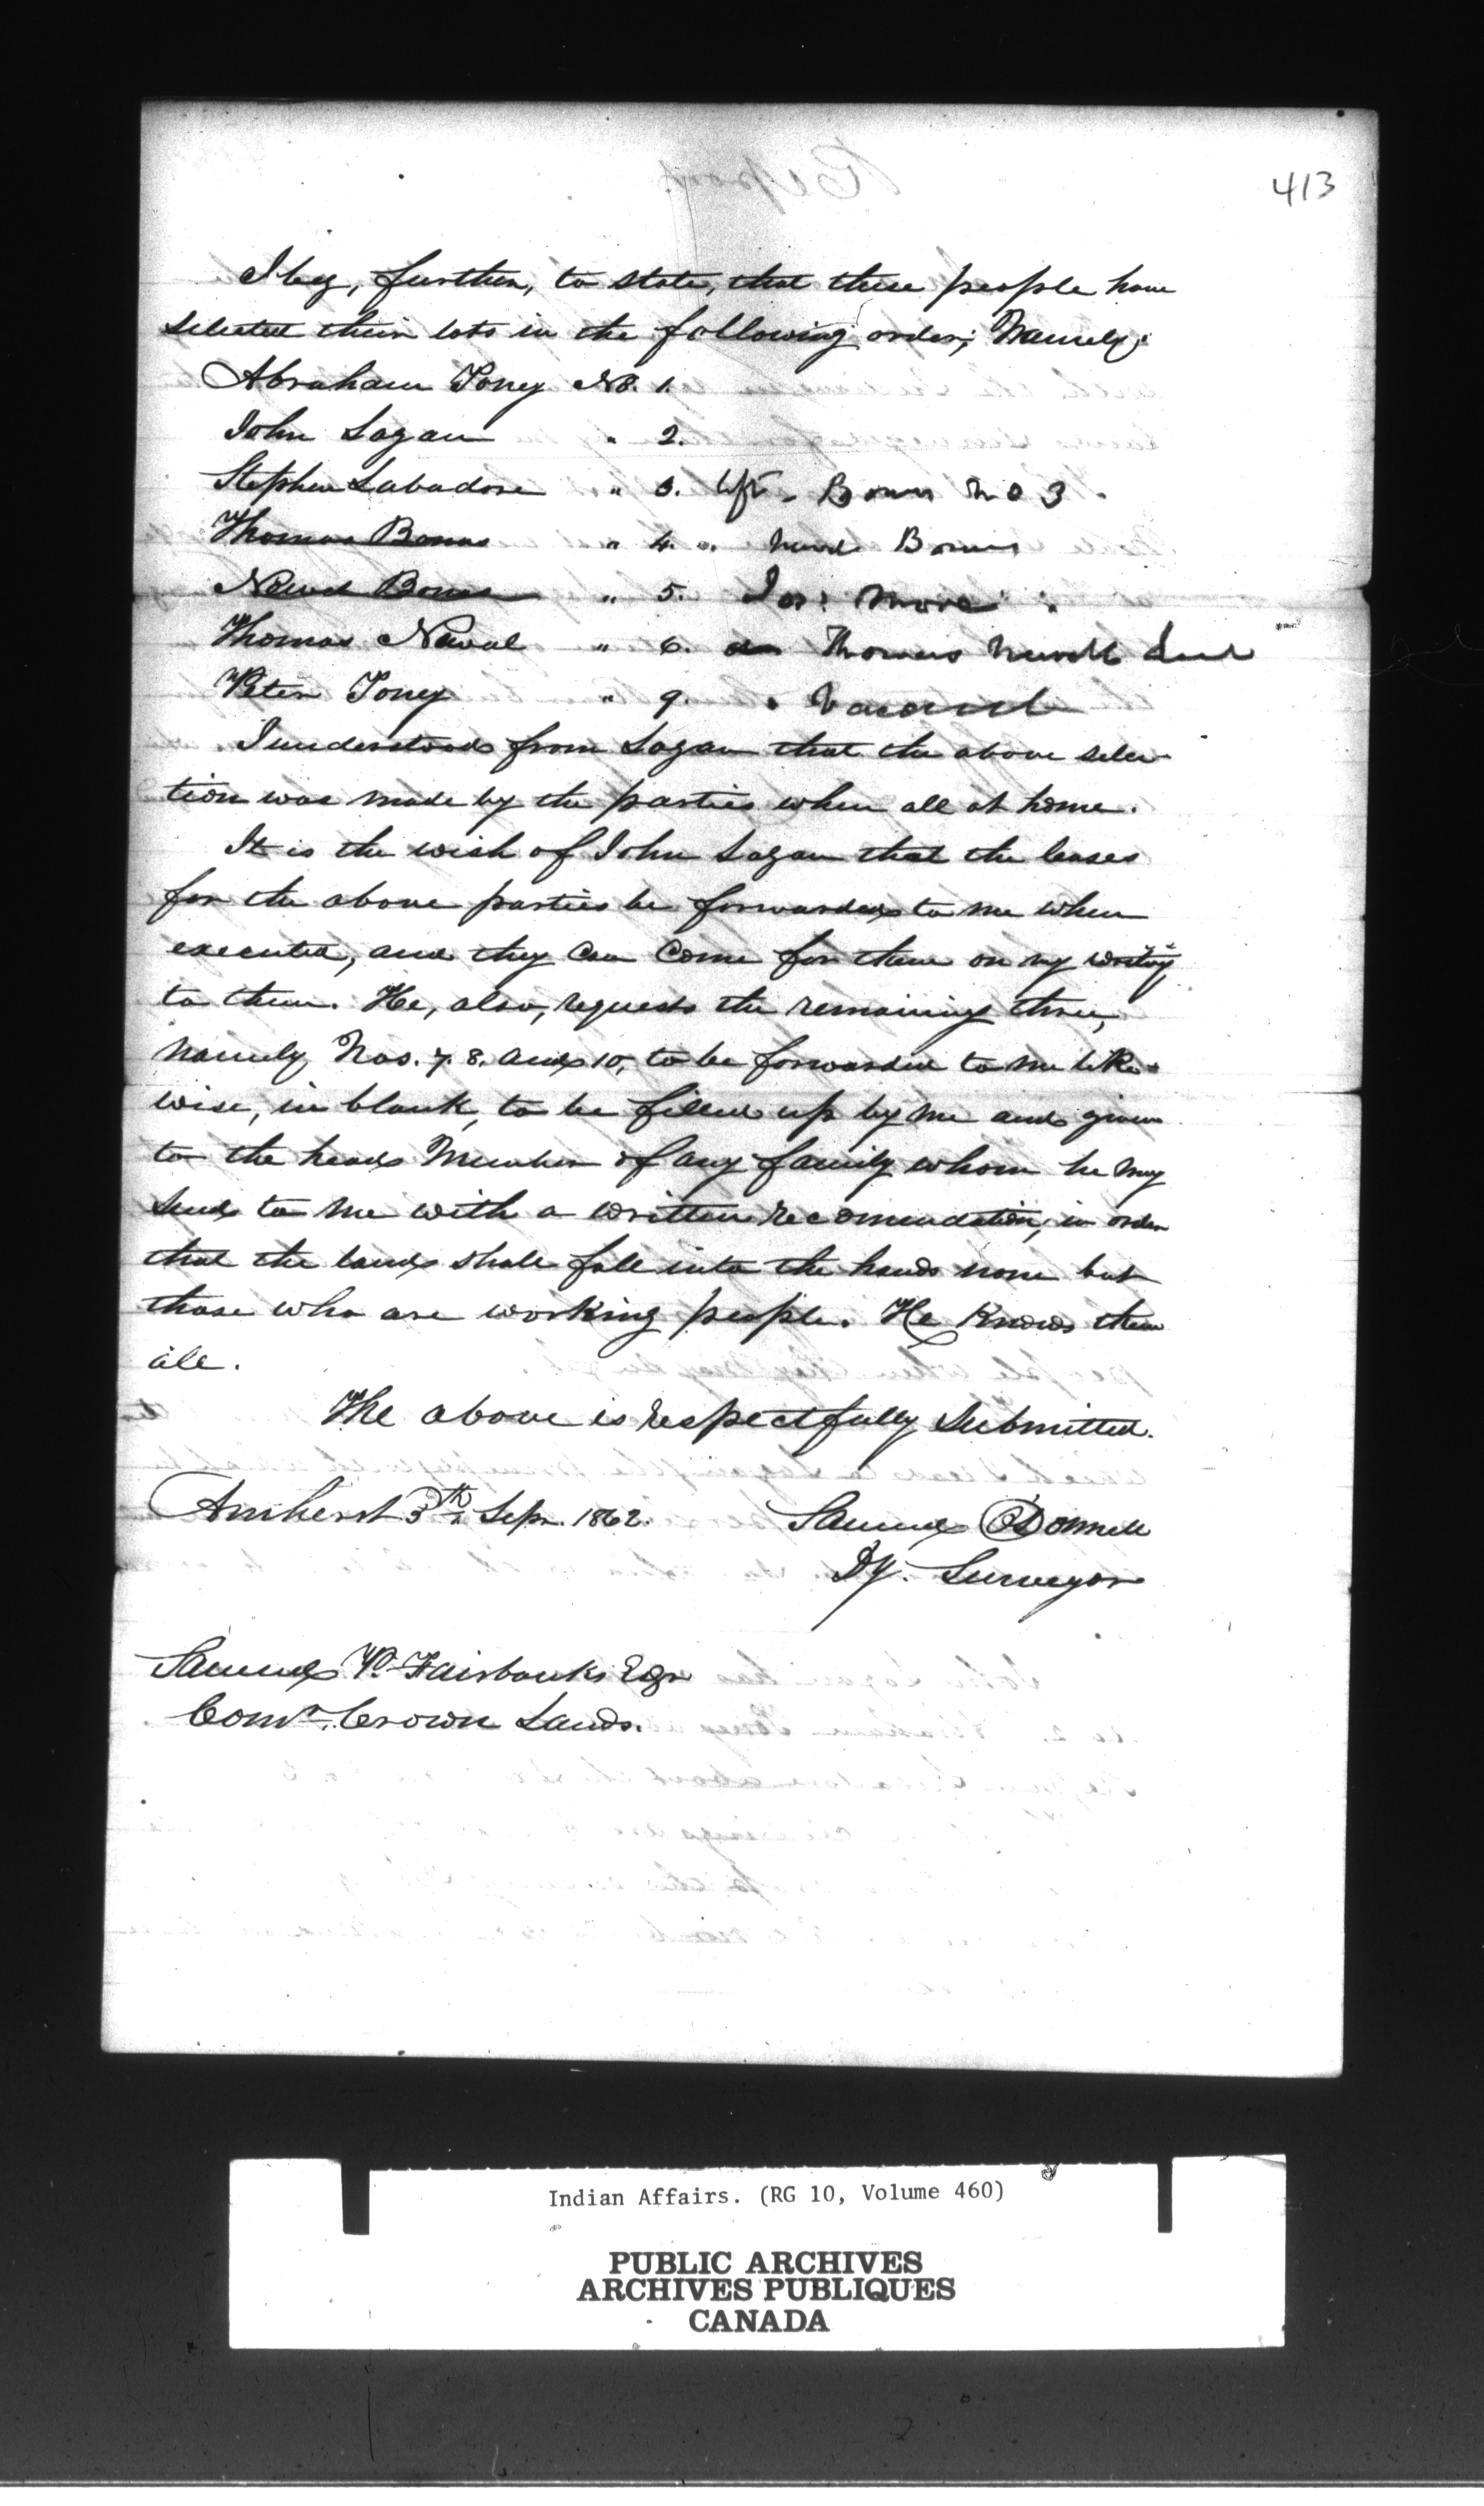 413
I beg, further, to state, that these people have
selected their lots in the following order; Namely;
Abraham Toney No. 1.
John Logan " 2.
Stephen Labadore " 3. left - Bonus No 3.
Thomas Bonus " 4. " Newel Bonus
Newel Bonus " 5. Jos: More
Thomas Newel " 6. Thomas Newell
Peter Toney " 9. " Vacant
I understood from Logan that the above selec-
tion was made by the parties when all at home.
It is the wish of John Logan that the leases
for the above parties be forwarded to me when
executed, and they can come for them on my writing
to them. He, also, requests the remaining three,
namely, Nos. 7. 8. and 10, to be forwarded to me like-
wise, in blank, to be filled up by me and given
to the head Member of any family whom he may
send to me with a written recomendation, in order
that the land shall fall into the hands none but
those who are working people. He knows them
all.
The above is respectfully Submitted.
Amherst 3th Sepr. 1862.
Samuel O'Donnell
Dy. Surveyor
Samuel P. Fairbanks Esqr
Comr. Crown Lands.
Indian Affairs. (RG 10, Volume 460)
PUBLIC ARCHIVES
ARCHIVES PUBLIQUES
CANADA